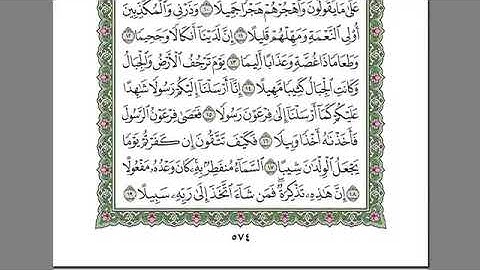 عَلَىٰ مَا يَقُولُونَ وَاهْجُرْهُمْ هَجْرًا جَمِيلًا ۝١٠ وَذَرْنِي وَالْمُكَذِّبِينَ
أُولِي النَّعْمَةِ وَمَهِّلْهُمْ قَلِيلًا ۝١١ إِنَّ لَدَيْنَا أَنكَالًا وَجَحِيمًا ۝١٢
وَطَعَامًا ذَا غُصَّةٍ وَعَذَابًا أَلِيمًا ۝١٣ يَوْمَ تَرْجُفُ الْأَرْضُ وَالْجِبَالُ
وَكَانَتِ الْجِبَالُ كَثِيبًا مَّهِيلًا ۝١٤ إِنَّا أَرْسَلْنَا إِلَيْكُمْ رَسُولًا شَاهِدًا
عَلَيْكُمْ كَمَا أَرْسَلْنَا إِلَىٰ فِرْعَوْنَ رَسُولًا ۝١٥ فَعَصَىٰ فِرْعَوْنُ الرَّسُولَ
فَأَخَذْنَاهُ أَخْذًا وَبِيلًا ۝١٦ فَكَيْفَ تَتَّقُونَ إِن كَفَرْتُمْ يَوْمًا
يَجْعَلُ الْوِلْدَانَ شِيبًا ۝١٧ السَّمَاءُ مُنفَطِرٌ بِهِ ۚ كَانَ وَعْدُهُ مَفْعُولًا
۝١٨ إِنَّ هَٰذِهِ تَذْكِرَةٌ ۖ فَمَن شَاءَ اتَّخَذَ إِلَىٰ رَبِّهِ سَبِيلًا ۝١٩
٥٧٤